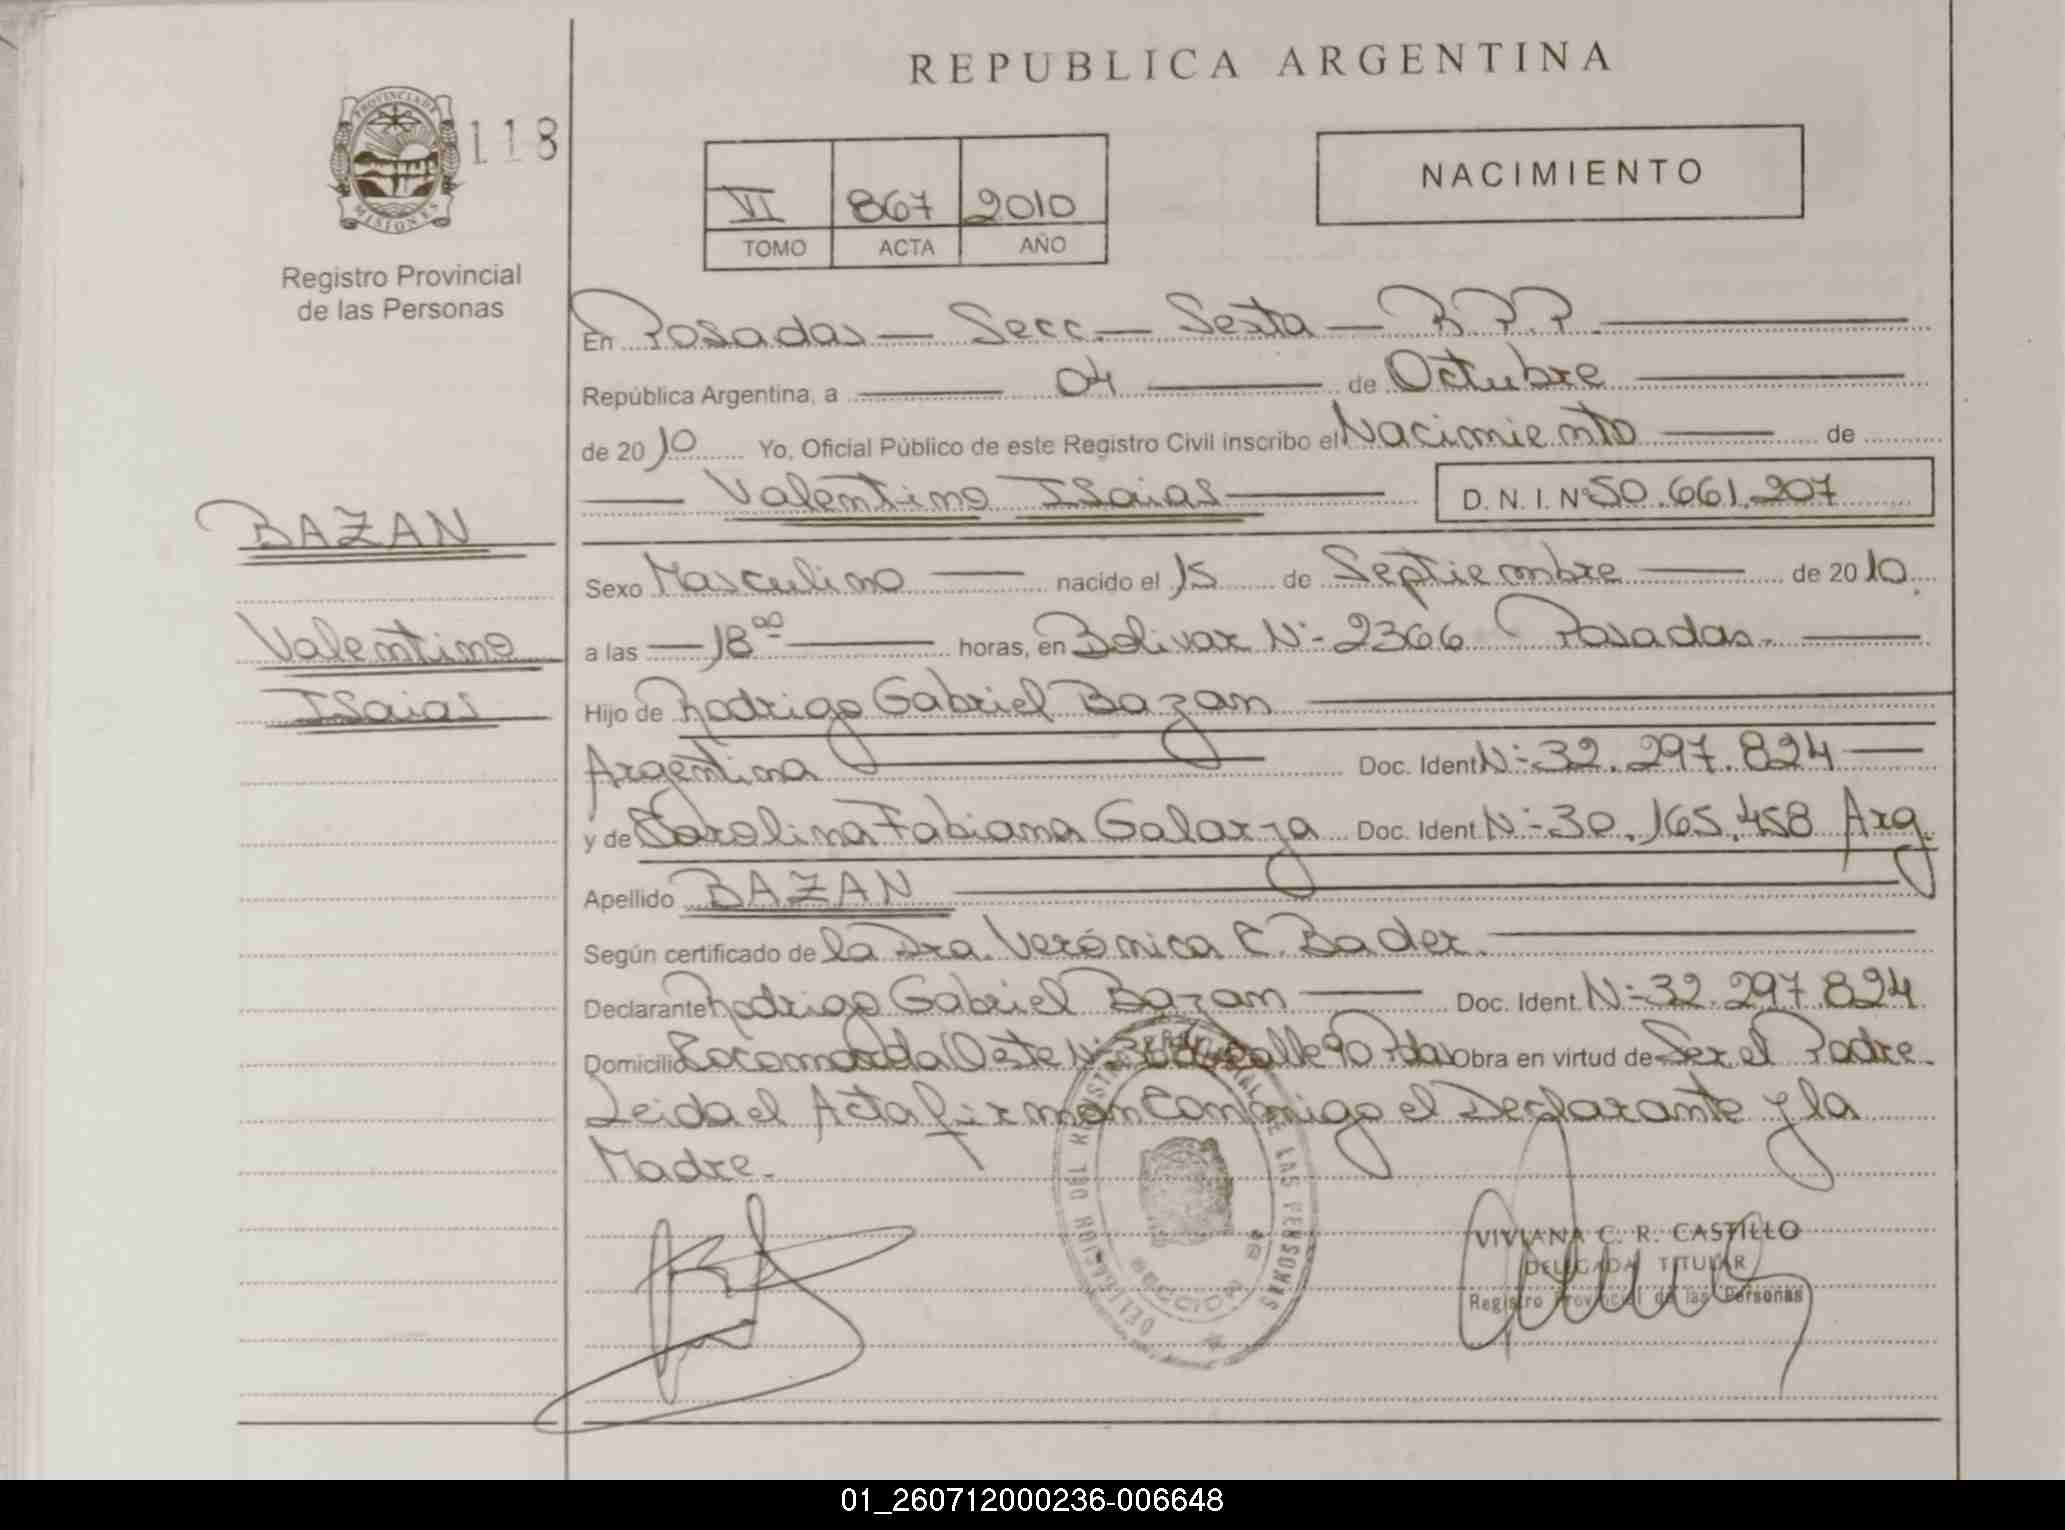 REPUBLICA ARGENTINA
PROVINCIA DE
MISIONES
118
Registro Provincial
de las Personas
VI 867 2010
TOMO ACTA AÑO
NACIMIENTO
En Posadas — Secc. — Sexta — R.P.P.
República Argentina, a — 04 — de Octubre
de 2010 Yo, Oficial Público de este Registro Civil inscribo el Nacimiento — de
— Valentino Isaias — D. N. I. Nº 50.661.207
BAZAN
Sexo Masculino — nacido el 15 de Septiembre — de 2010.
Valentino
a las — 18 ºº — horas, en Bolivar Nº- 2366 Posadas.-
Isaias
Hijo de Rodrigo Gabriel Bazan
Argentina Doc. Ident. Nº- 32.297.824 —
y de Carolina Fabiana Galarza Doc. Ident. Nº- 30.165.458 Arg.
Apellido BAZAN
Según certificado de la Dra. Verónica C. Bader.
Declarante Rodrigo Gabriel Bazan — Doc. Ident. Nº- 32.297.824
Domicilio Oeste calle 90 Pdas Obra en virtud de Ser el Padre.
Leida el Acta firman Conmigo el Declarante y la
Madre.-
DELEGACION DEL REGISTRO PROVINCIAL DE LAS PERSONAS
SECCION 6ª
VIVIANA C. R. CASTILLO
DELEGADA TITULAR
Registro Provincial de las Personas
01_260712000236-006648